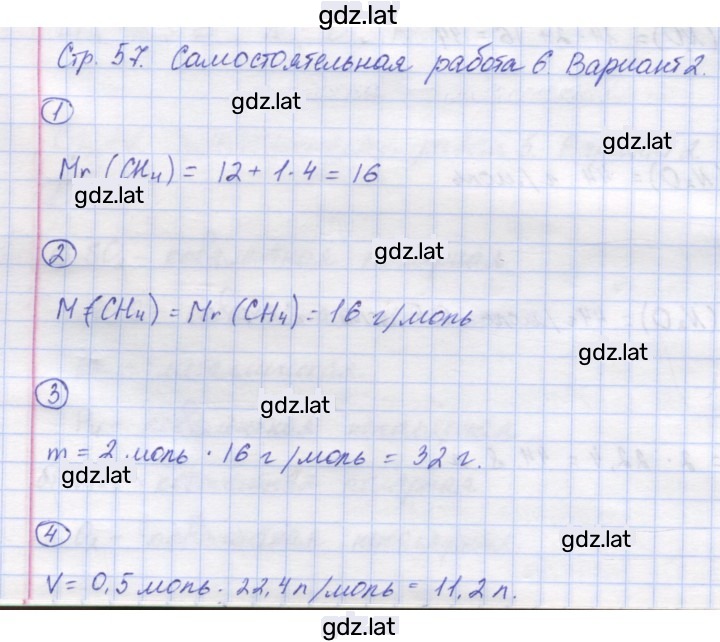 gdz.lat
Стр. 57. Самостоятельная работа 6. Вариант 2.
gdz.lat
1
gdz.lat
Mr (CH₄) = 12 + 1·4 = 16
gdz.lat
2
gdz.lat
M (CH₄) = Mr (CH₄) = 16 г/моль
gdz.lat
3
gdz.lat
m = 2 моль · 16 г/моль = 32 г.
gdz.lat
4
gdz.lat
V = 0,5 моль · 22,4 л/моль = 11,2 л.
gdz.lat